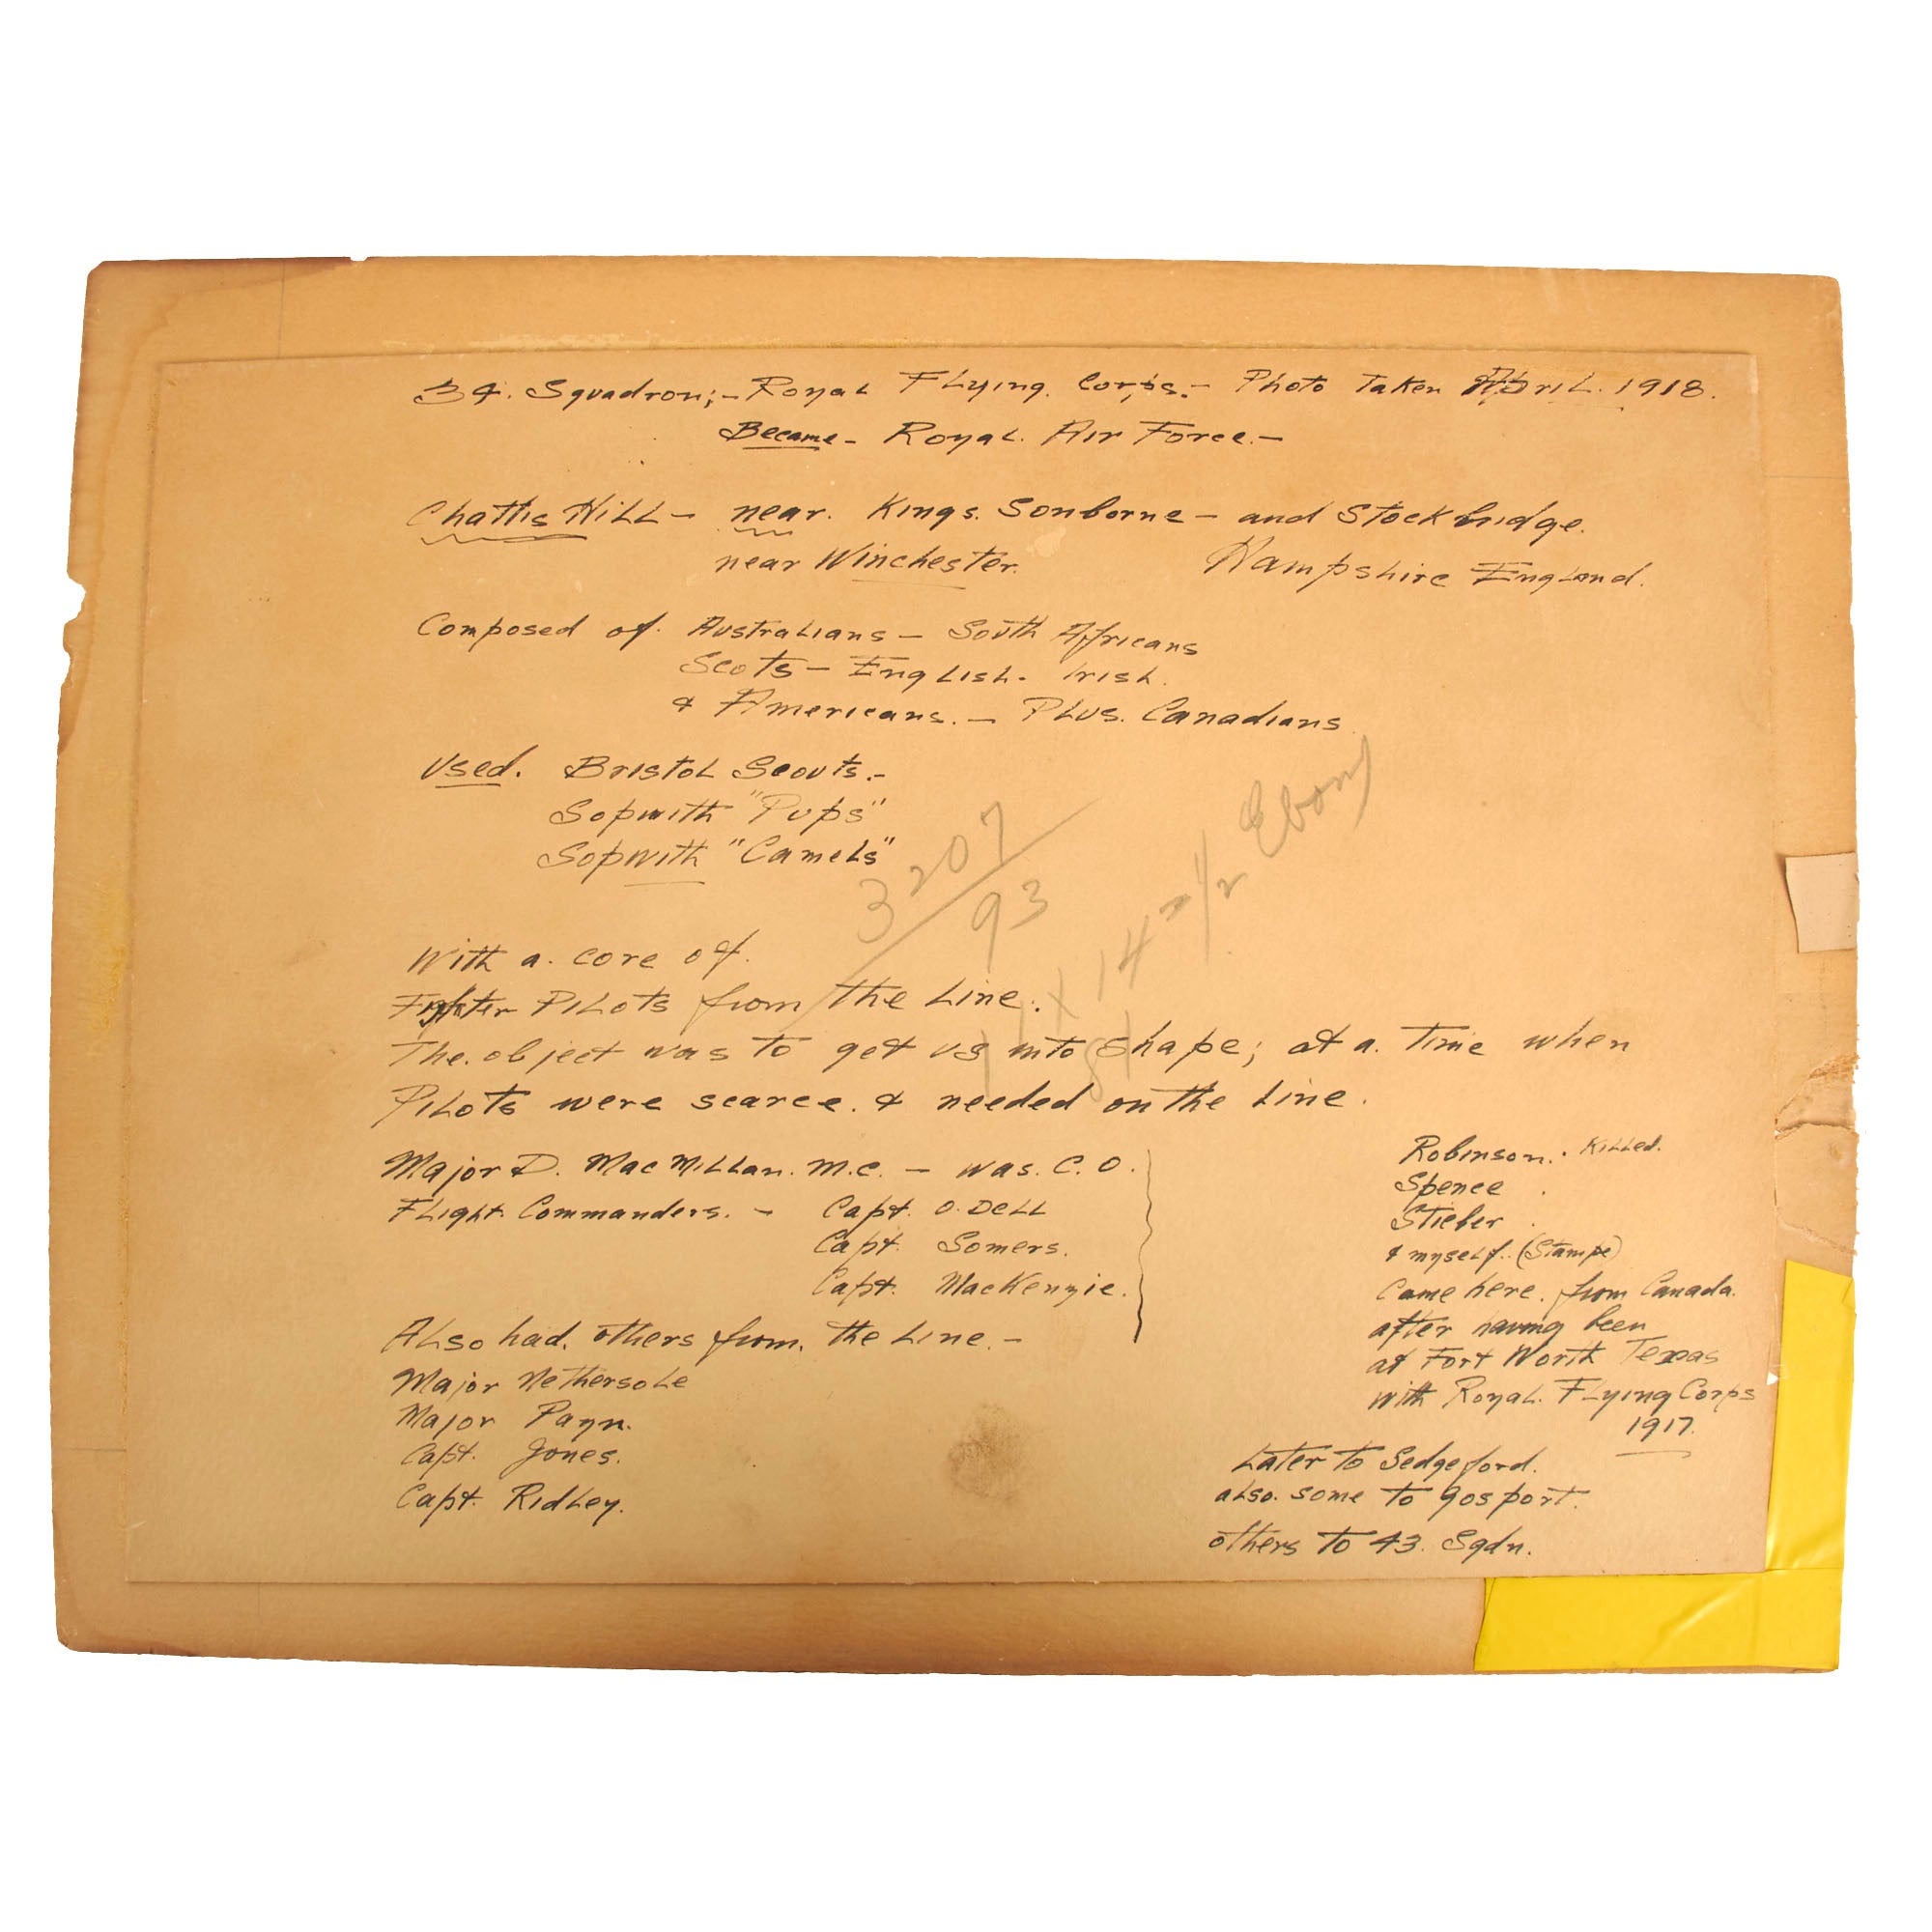 34. Squadron;- Royal Flying Corps.- Photo Taken April. 1918.
Became- Royal. Air Force.-
Chattis Hill- near. Kings. Sonborne- and Stockbridge.
near Winchester. Hampshire England.
Composed of. Australians- South Africans
Scots- English- Irish.
& Americans.- Plus. Canadians
Used. Bristol Scouts.-
Sopwith "Pups"
Sopwith "Camels"
3207
93
11 x 14 1/2 Ebony
With a. core of.
Fighter Pilots from the Line.
The. object was to get us into shape; at a. Time when
Pilots were scarce. & needed on the Line.
Major D. MacMillan. M.C. - was. C.O.
Flight Commanders. - Capt. O.Dell
Capt. Somers.
Capt. MacKenzie.
Also had. others from. the Line.-
Major Nethersole
Major Payn.
Capt. Jones.
Capt. Ridley.
Robinson. Killed.
Spence
Stieber
& myself.. (Stampe)
Came here. from Canada.
after having been
at Fort Worth Texas
with Royal. Flying Corps
1917.
Later to Sedgeford.
also. some to Gosport.
others to 43. Sqdn.